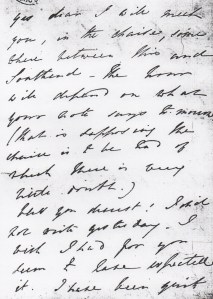 yes dear I will meet
you, in the chaise, some
where between this and
Southend - The hour
will depend on what
your note says to-morrow
(that is supposing the
chaise is to be had of
which there is very
little doubt.)
bless you dearest! I did
not write yesterday. I
wish I had for you
seem to have expected
it. I have been quite